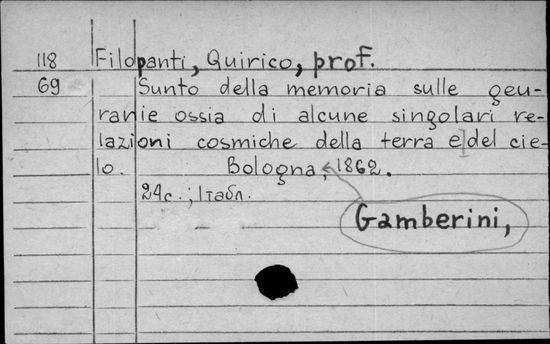 118 Filopanti, Quirico, prof.
69 Sunto della memoria sulle geu-
ranie ossia di alcune singolari re-
lazioni cosmiche della terra e] del cie-
lo. Bologna, 1862.
24c.; 1табл.
Gamberini,